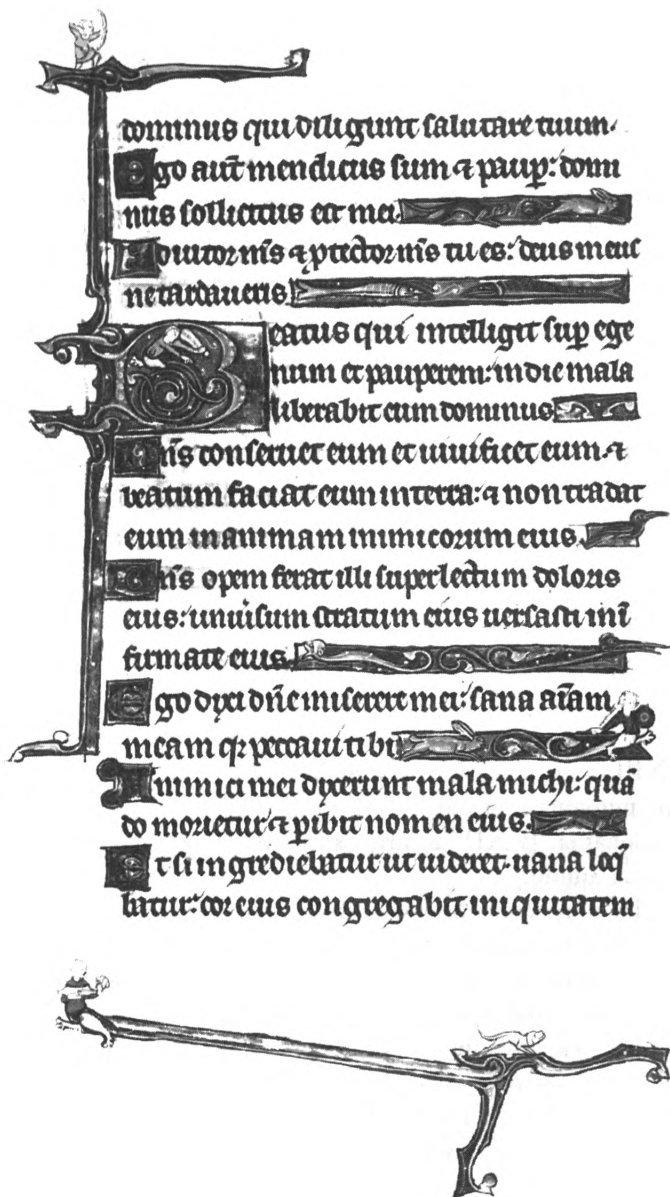 dominus qui diligunt salutare tuum.
Ego aut̄ mendicus sum ⁊ paup̄: domi
nus sollicitus est mei.
Adiutor m̄s ⁊ ꝓtector m̄s tu es: deus meus
ne tardaueris.
Beatus qui intelligit sup̄ ege
num et pauperem: in die mala
liberabit eum dominus.
Dn̄s conseruet eum et uiuificet eum. ⁊
beatum faciat eum in terra: ⁊ non tradat
eum in animam inimicorum eius.
Dn̄s opem ferat illi super lectum doloris
eius: uniūsum stratum eius uersasti in ī
firmitate eius.
Ego dixi dn̄e miserere mei: sana aīam
meam qꝛ peccaui tibi
Inimici mei dixerunt mala michi: quā
do morietur ⁊ ꝑibit nomen eius.
Et si ingrediebatur ut uideret. uana loq̄
batur: cor eius congregabit iniquitatem